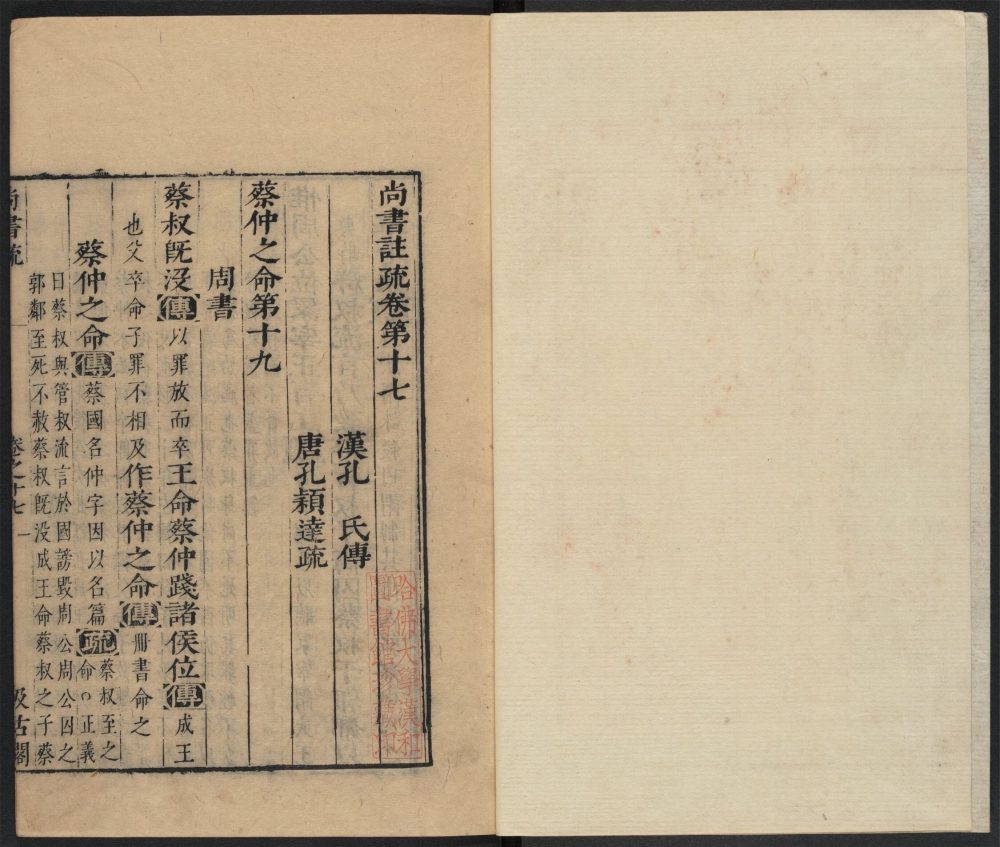 尚書註疏卷第十七
漢孔　氏傳
唐孔穎達疏
蔡仲之命第十九
周書
蔡叔旣没【傳】以罪放而卒王命蔡仲踐諸侯位【傳】成王
也父卒命子罪不相及作蔡仲之命【傳】冊書命之
蔡仲之命【傳】蔡國名仲字因以名篇【疏】蔡叔至之
命○正義
曰蔡叔與管叔流言於國謗毀周公周公囚之
郭鄰至死不赦蔡叔旣没成王命蔡叔之子蔡
尚書疏　卷之十七　一　汲古閣
哈佛大學漢和
圖書館珍藏印